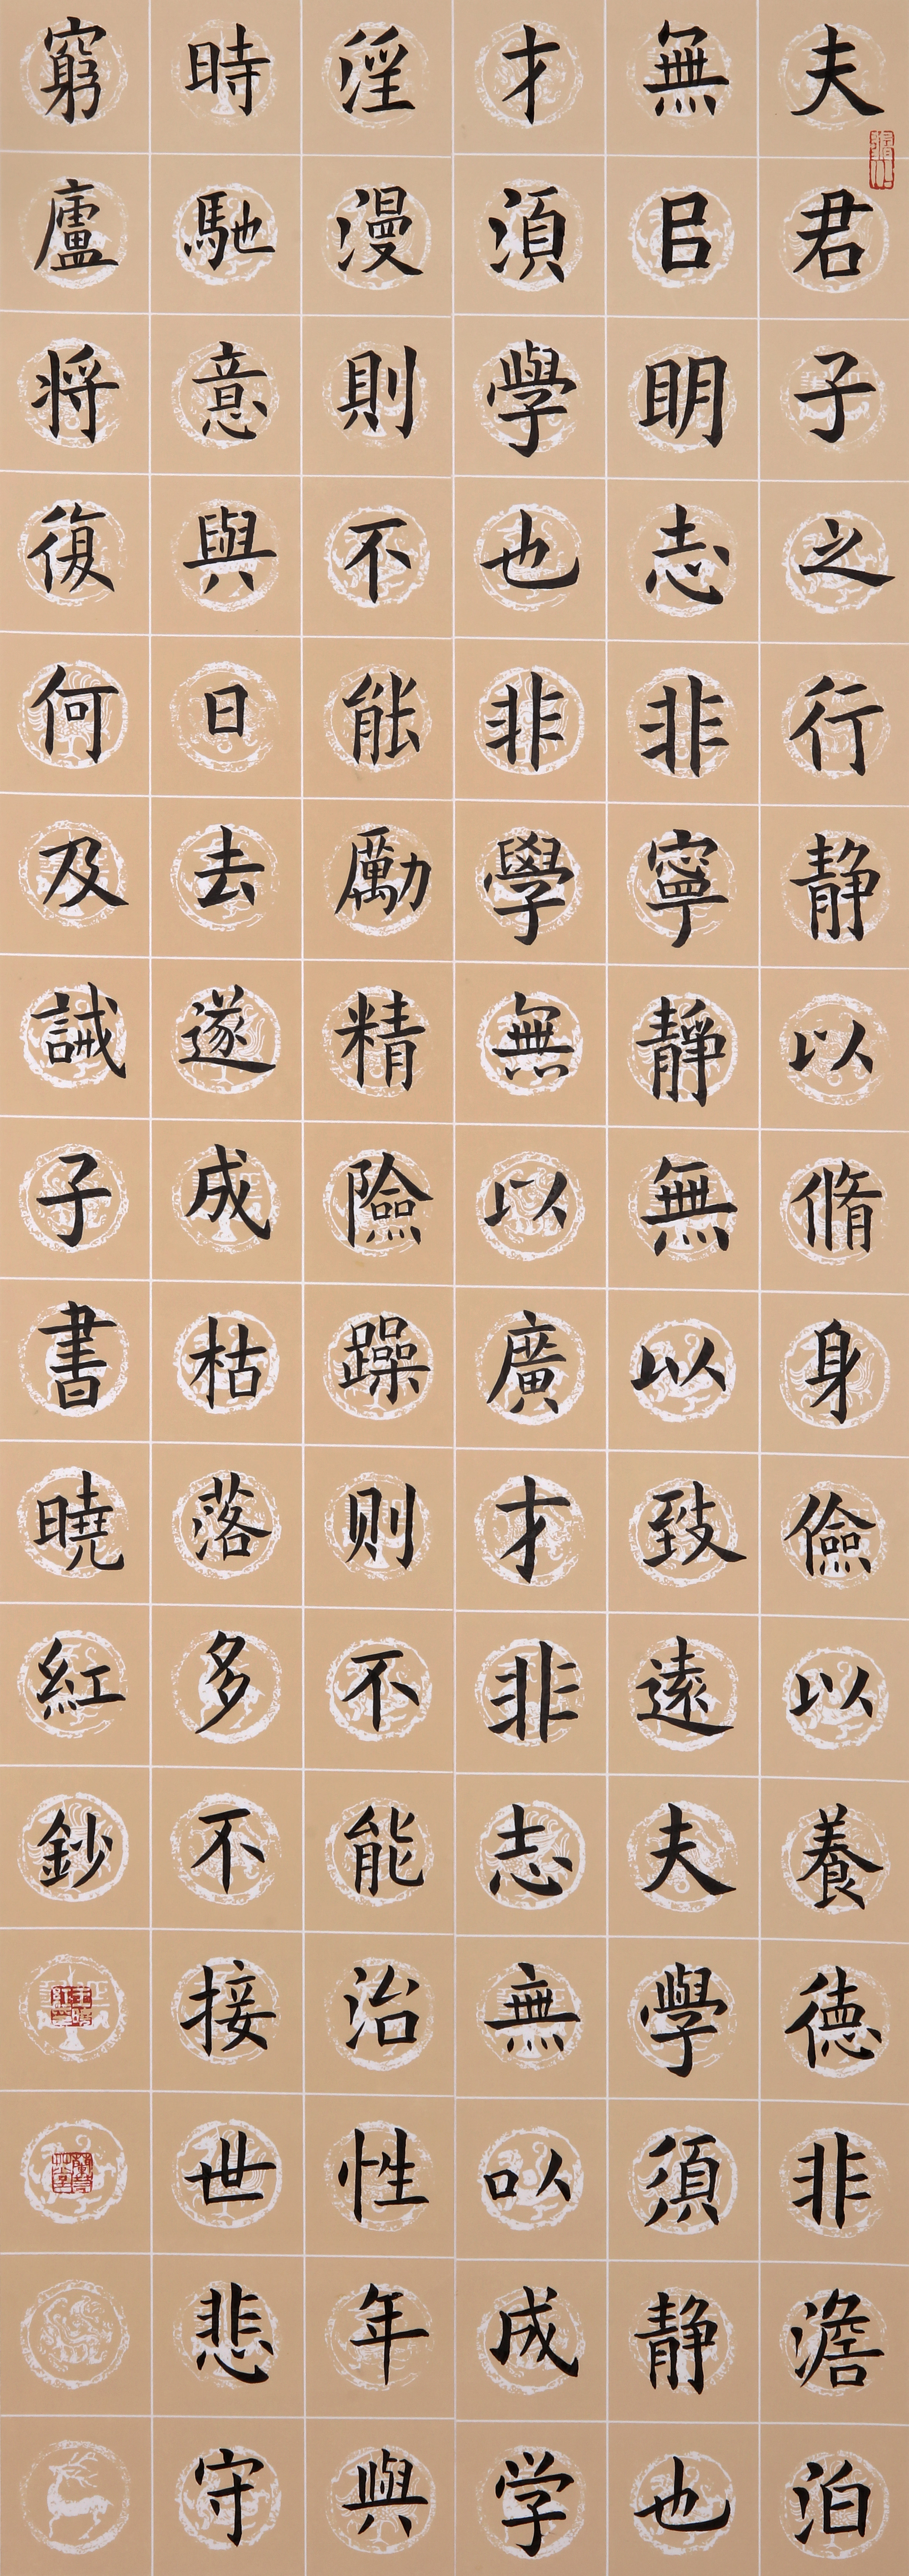 夫君子之行静以脩身儉以養德非澹泊
無㠯明志非寧靜無以致遠夫學須静也
才須學也非學無以廣才非志無以成学
淫漫則不能勵精險躁则不能治性年與
時馳意與日去遂成枯落多不接世悲守
窮廬将復何及誡子書曉紅鈔